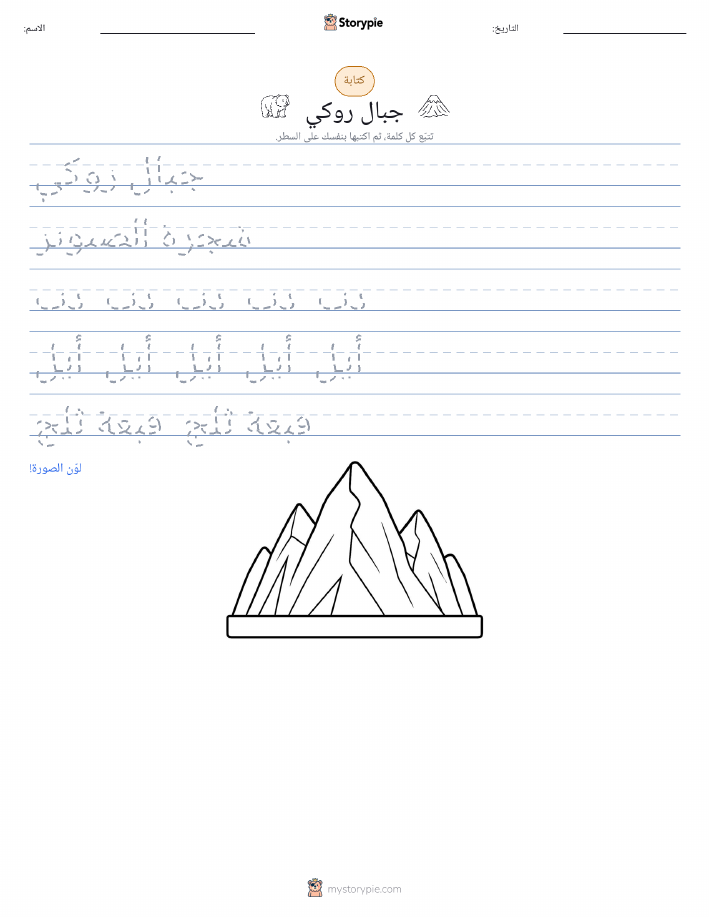 الاسم:
Storypie
التاريخ:
كتابة
جبال روكي
تتبّع كل كلمة، ثم اكتبها بنفسك على السطر.
جبال روكي
شجرة الصنوبر
دب دب دب دب دب
أيل أيل أيل أيل أيل
قبعة ثلج قبعة ثلج
لوّن الصورة!
mystorypie.com